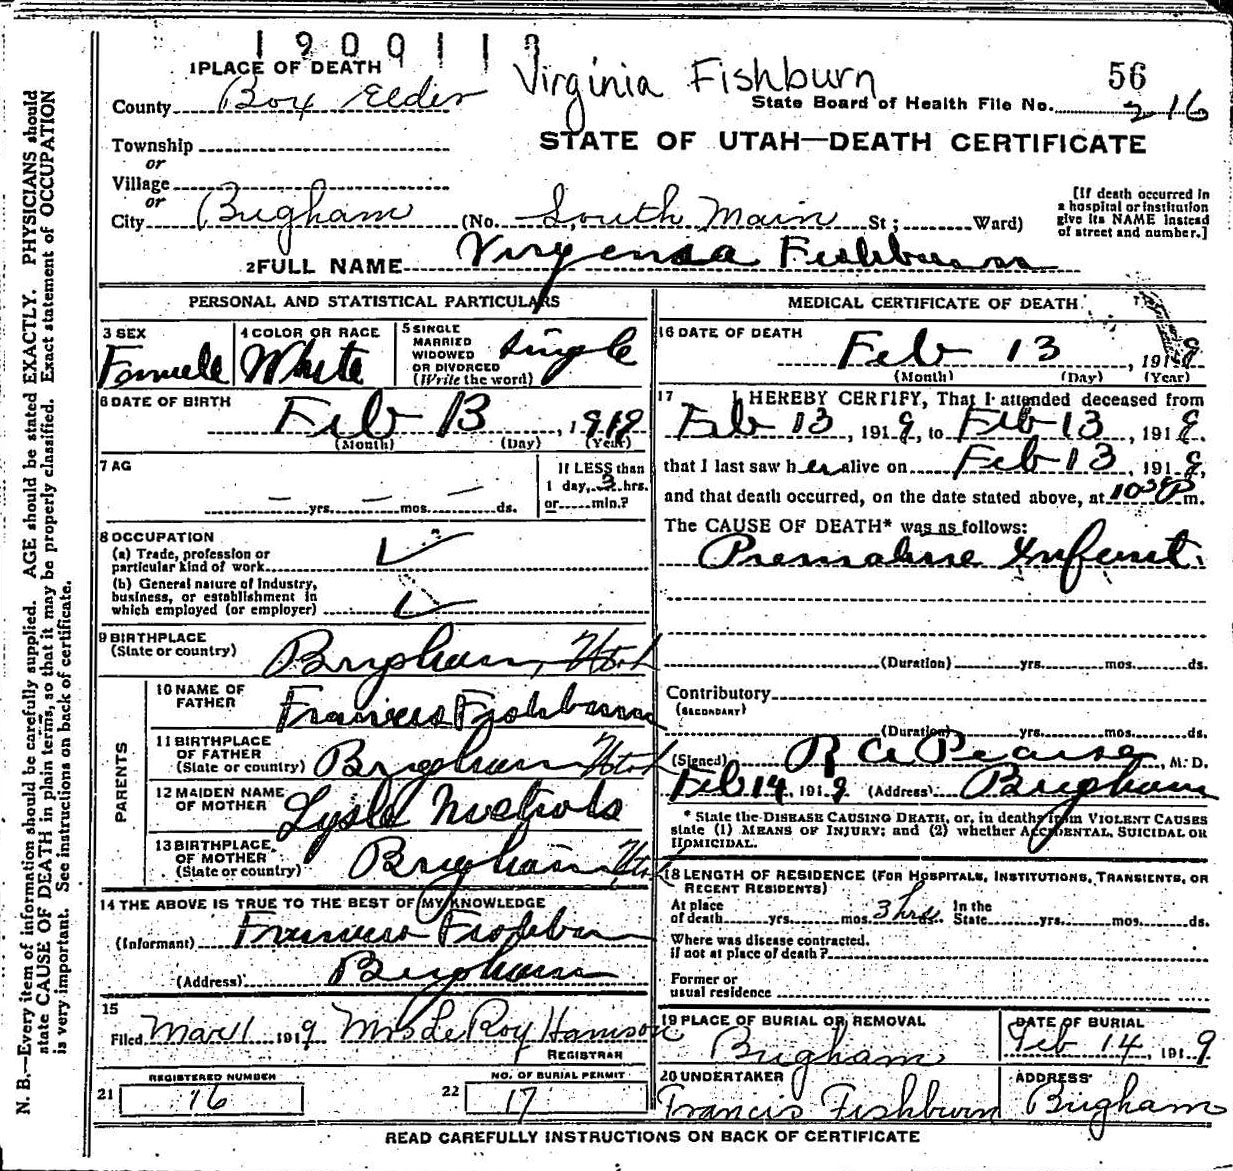 1900113
1 PLACE OF DEATH
Virginia Fishburn
56
County Box Elder
State Board of Health File No. 216
Township
STATE OF UTAH—DEATH CERTIFICATE
or
Village
or
City Brigham (No. South Main St; Ward)
[If death occurred in
a hospital or institution
give its NAME instead
of street and number.]
2 FULL NAME Virginia Fishburn
PERSONAL AND STATISTICAL PARTICULARS
3 SEX
Female
4 COLOR OR RACE
White
5 SINGLE
MARRIED
WIDOWED
OR DIVORCED
(Write the word)
single
6 DATE OF BIRTH
Feb 13, 1919
(Month) (Day) (Year)
7 AG
— yrs. — mos. — ds.
If LESS than
1 day, 3 hrs.
or min.?
8 OCCUPATION
(a) Trade, profession or
particular kind of work
(b) General nature of Industry,
business, or establishment in
which employed (or employer)
9 BIRTHPLACE
(State or country)
Brigham, Utah
PARENTS
10 NAME OF
FATHER
Francis Fishburn
11 BIRTHPLACE
OF FATHER
(State or country)
Brigham Utah
12 MAIDEN NAME
OF MOTHER
Lysle Nichols
13 BIRTHPLACE
OF MOTHER
(State or country)
Brigham Utah
14 THE ABOVE IS TRUE TO THE BEST OF MY KNOWLEDGE
(Informant) Francis Fishburn
(Address) Brigham
15
Filed Mar 1 1919 Mrs Le Roy Hamson
REGISTRAR
REGISTERED NUMBER
21 16
NO. OF BURIAL PERMIT
22 17
MEDICAL CERTIFICATE OF DEATH
16 DATE OF DEATH
Feb 13, 1919
(Month) (Day) (Year)
17 I HEREBY CERTIFY, That I attended deceased from
Feb 13, 1919, to Feb 13, 1919.
that I last saw her alive on Feb 13, 1919,
and that death occurred, on the date stated above, at 10 P m.
The CAUSE OF DEATH* was as follows:
Premature Infant.
(Duration) yrs. mos. ds.
Contributory
(SECONDARY)
(Duration) yrs. mos. ds.
(Signed) R A Pearse, M. D.
Feb 14, 1919 (Address) Brigham
* State the DISEASE CAUSING DEATH, or, in deaths from VIOLENT CAUSES
state (1) MEANS OF INJURY; and (2) whether ACCIDENTAL, SUICIDAL OR
HOMICIDAL.
18 LENGTH OF RESIDENCE (FOR HOSPITALS, INSTITUTIONS, TRANSIENTS, OR
RECENT RESIDENTS)
At place
of death yrs. mos 3 hrs. In the
State yrs. mos. ds.
Where was disease contracted.
if not at place of death?
Former or
usual residence
19 PLACE OF BURIAL OR REMOVAL
Brigham
DATE OF BURIAL
Feb 14, 1919
20 UNDERTAKER
Francis Fishburn
ADDRESS
Brigham
READ CAREFULLY INSTRUCTIONS ON BACK OF CERTIFICATE
N. B.—Every item of information should be carefully supplied. AGE should be stated EXACTLY. PHYSICIANS should
state CAUSE OF DEATH in plain terms, so that it may be properly classified. Exact statement of OCCUPATION
is very important. See instructions on back of certificate.